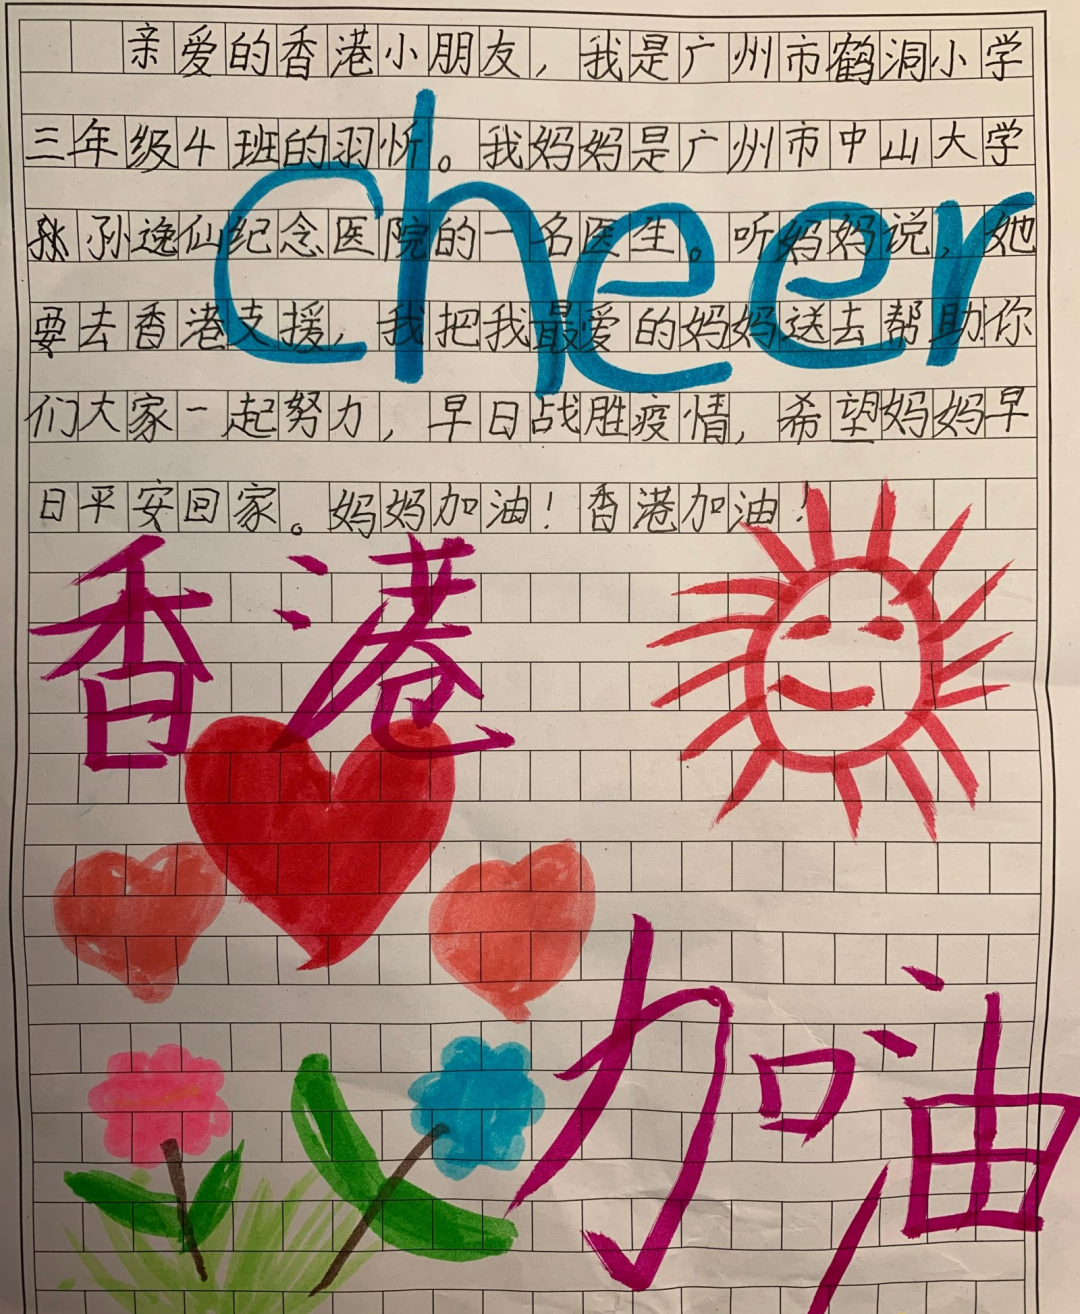 亲爱的香港小朋友，我是广州市鹤洞小学
三年级4班的羽忻。我妈妈是广州市中山大学
孙逸仙纪念医院的一名医生。听妈妈说，她
要去香港支援，我把我最爱的妈妈送去帮助你
们大家一起努力，早日战胜疫情，希望妈妈早
日平安回家。妈妈加油！香港加油！
cheer
香港
加油